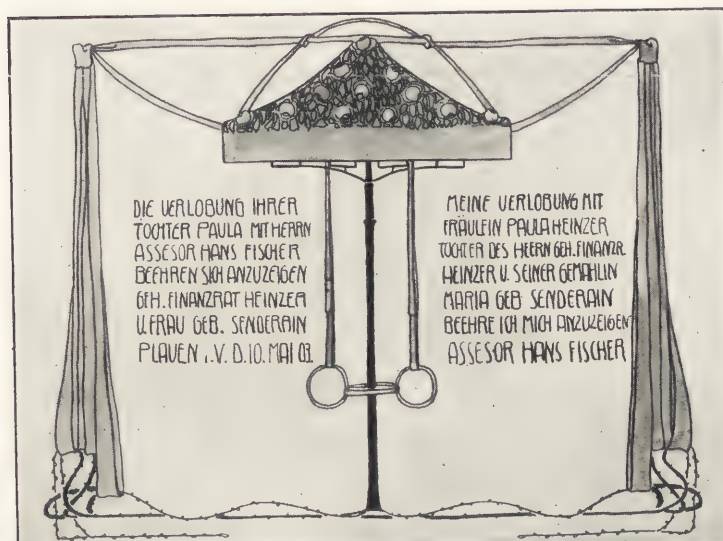 DIE VERLOBUNG IHRER
TOCHTER PAULA MIT HERRN
ASSESOR HANS FISCHER
BEEHREN SICH ANZUZEIGEN
GEH. FINANZRAT HEINZER
U. FRAU GEB. SENDERAIN
PLAUEN i. V. D. 10. MAI 03.
MEINE VERLOBUNG MIT
FRÄULEIN PAULA HEINZER
TOCHTER DES HEERN GEH. FINANZR.
HEINZER U. SEINER GEMAHLIN
MARIA GEB. SENDERAIN
BEEHRE ICH MICH ANZUZEIGEN
ASSESOR HANS FISCHER